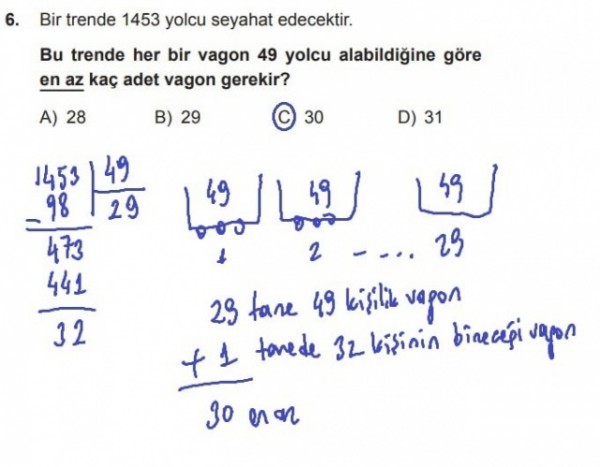 6. Bir trende 1453 yolcu seyahat edecektir.
Bu trende her bir vagon 49 yolcu alabildiğine göre
en az kaç adet vagon gerekir?
A) 28 B) 29 C) 30 D) 31
1453 49
- 98 29
473
441
32
49 49 49
1 2 - - ... 29
29 tane 49 kişilik vagon
+ 1 tanede 32 kişinin bineceği vagon
30 en az